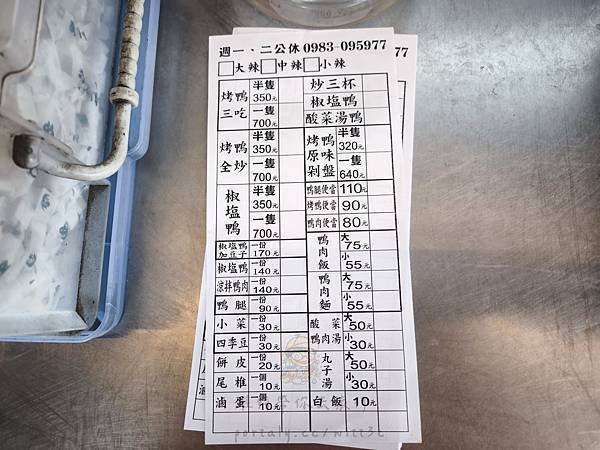 週一、二公休0983-095977
77
□大辣□中辣□小辣
烤鴨三吃 半隻350元 一隻700元
炒三杯
椒塩鴨
酸菜湯鴨
烤鴨全炒 半隻350元 一隻700元
烤鴨原味剁盤 半隻320元 一隻640元
椒塩鴨 半隻350元 一隻700元
鴨腿便當 110元
烤鴨便當 90元
鴨肉便當 80元
椒塩鴨加豆子 一份170元
鴨肉飯 大75元 小55元
椒塩鴨 一份140元
涼拌鴨肉 一份140元
鴨肉麵 大75元 小55元
鴨腿 一個90元
小菜 一份30元
酸菜鴨肉湯 大50元 小30元
四季豆 一份30元
餅皮 一份20元
丸子湯 大50元 小30元
尾椎 一個10元
滷蛋 一個10元
白飯 10元
portaly.cc/nitt3c